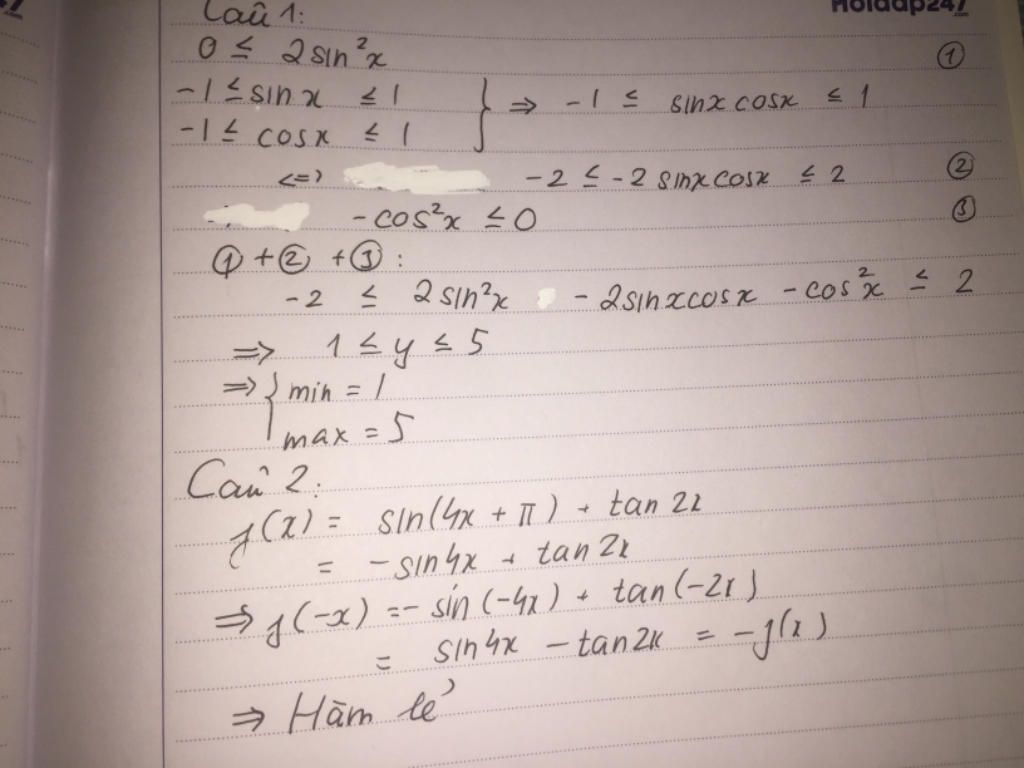 Hoidap247
.com
Câu 1:
0 ≤ 2sin²x ①
-1 ≤ sinx ≤ 1
-1 ≤ cosx ≤ 1 } ⇒ -1 ≤ sinx cosx ≤ 1
<=> -2 ≤ -2sinxcosx ≤ 2 ②
-cos²x ≤ 0 ③
① + ② + ③ :
-2 ≤ 2sin²x - 2sinxcosx - cos²x ≤ 2
⇒ 1 ≤ y ≤ 5
⇒ { min = 1
max = 5
Câu 2:
f(x) = sin(4x + π) + tan 2x
= -sin4x + tan 2x
⇒ f(-x) = - sin(-4x) + tan(-2x)
= sin4x - tan2x = -f(x)
⇒ Hàm lẻ